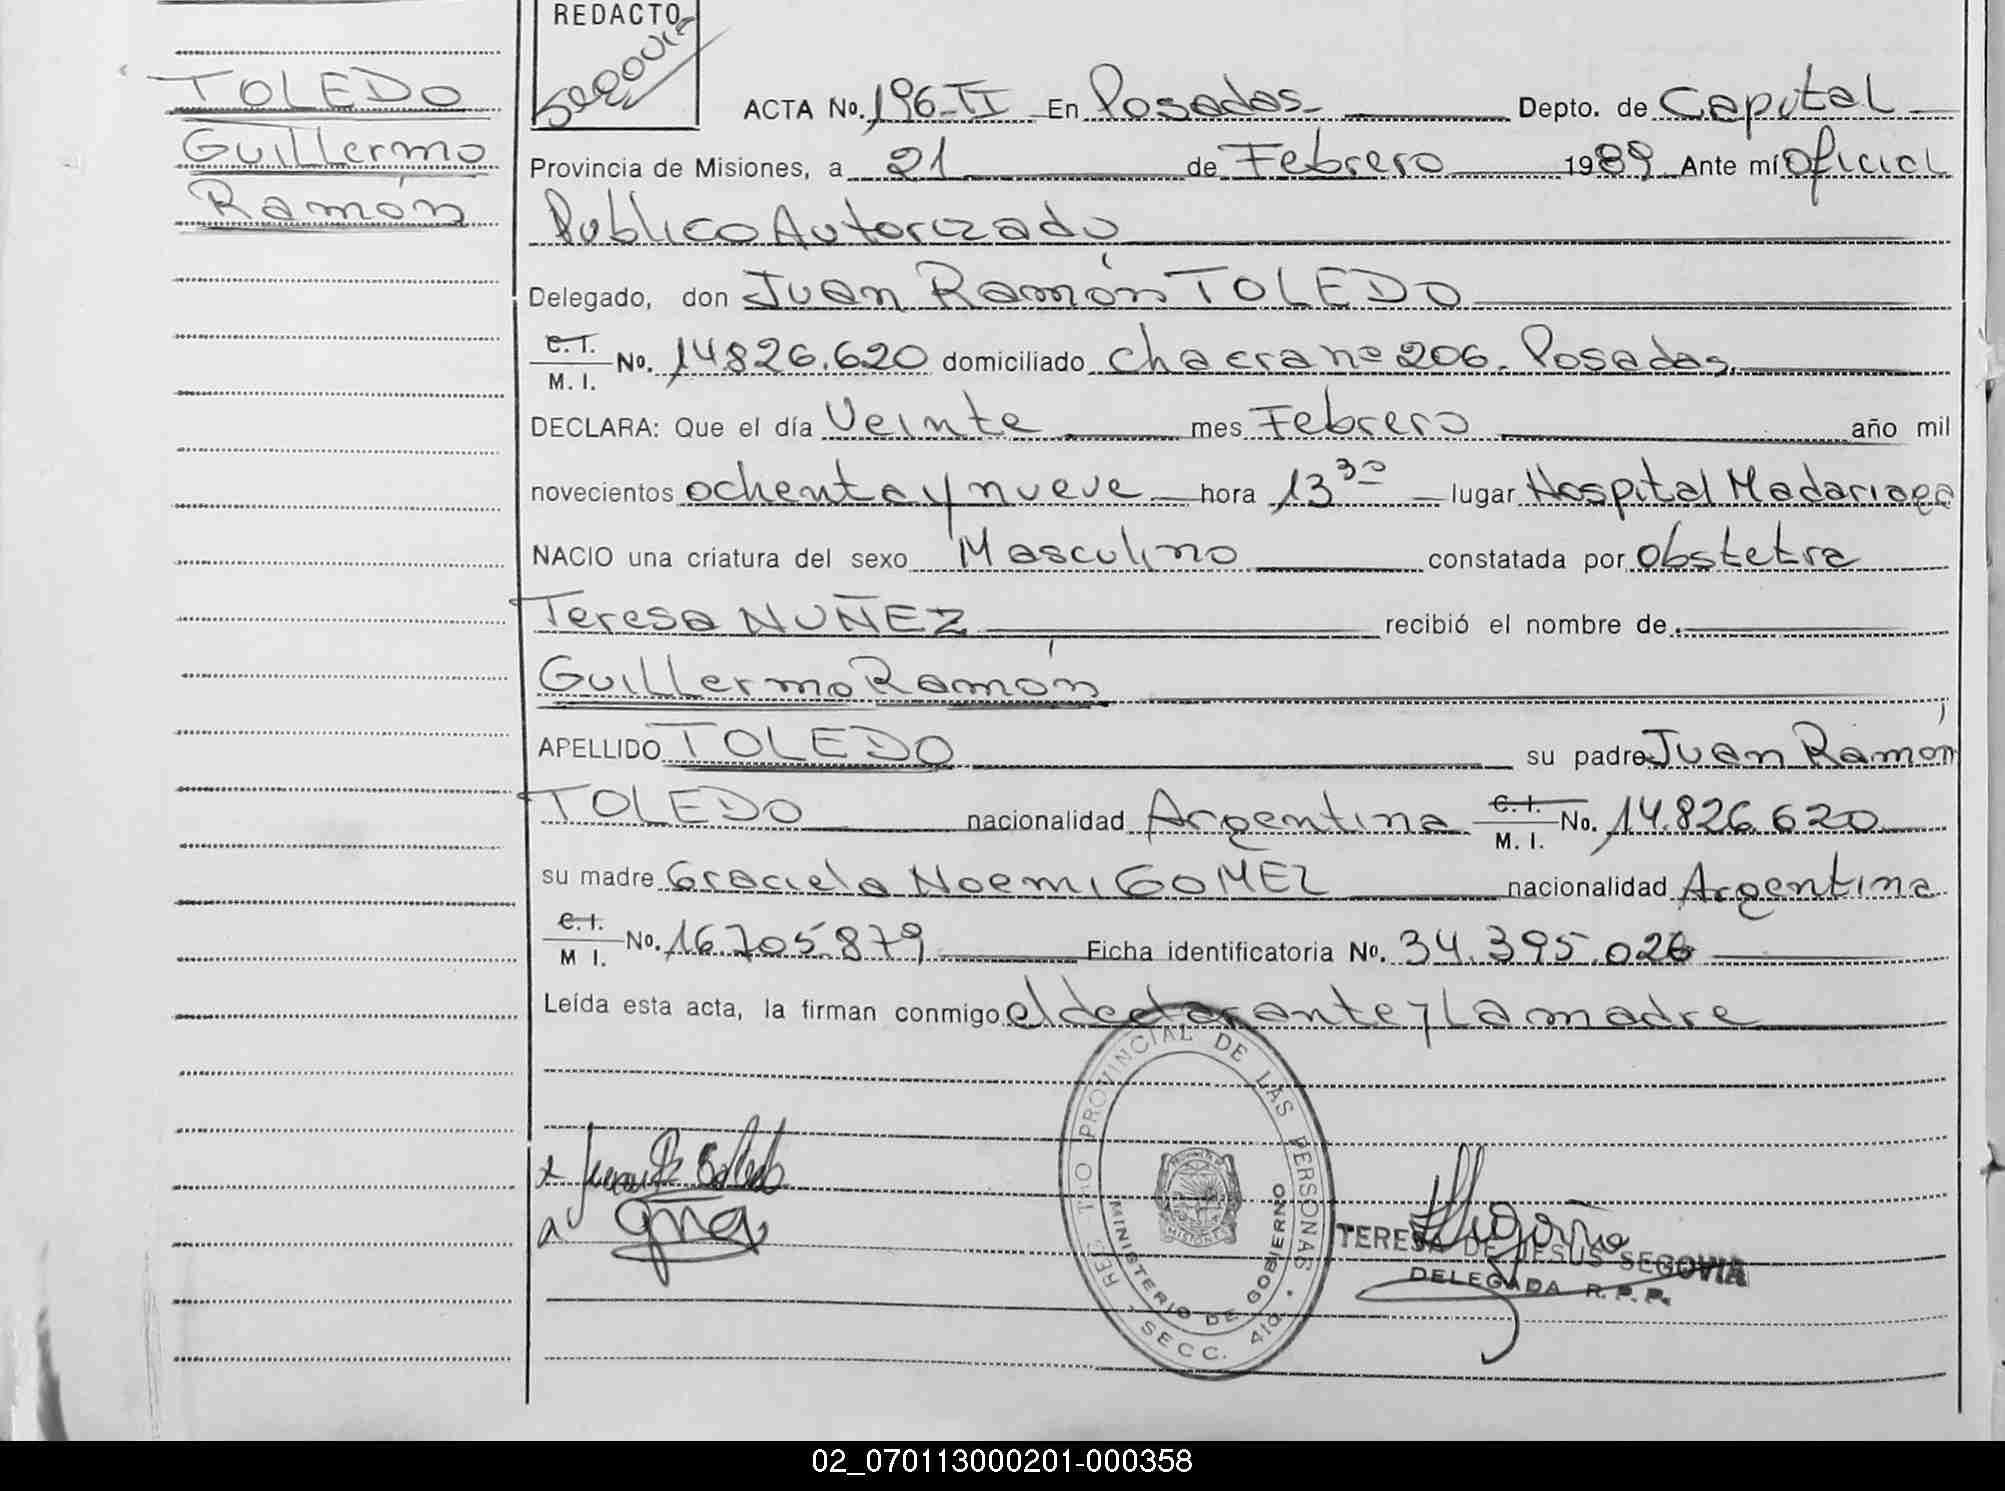 REDACTO
SEGOVIA
TOLEDO
Guillermo
Ramón
ACTA No. 196-TI En Posadas Depto. de Capital
Provincia de Misiones, a 21 de Febrero 1989 Ante mí Oficial
Publico Autorizado
Delegado, don Juan Ramón TOLEDO
C.I. M. I. No. 14.826.620 domiciliado chacra nº 206. Posadas.
DECLARA: Que el día Veinte mes Febrero año mil
novecientos ochenta y nueve hora 13 30 lugar Hospital Madariaga
NACIO una criatura del sexo Masculino constatada por obstetra
Teresa NUÑEZ recibió el nombre de:
Guillermo Ramón
APELLIDO TOLEDO su padre Juan Ramón
TOLEDO nacionalidad Argentina C.I. M. I. No. 14.826.620
su madre Graciela Noemi GOMEZ nacionalidad Argentina
C.I. M I. No. 16.705.879 Ficha identificatoria No. 34.395.026
Leída esta acta, la firman conmigo el declarante y la madre
REGISTRO PROVINCIAL DE LAS PERSONAS
MINISTERIO DE GOBIERNO
MISIONES
SECC. 4ta.
TERESA DE JESUS SEGOVIA
DELEGADA R. P. P.
02_070113000201-000358